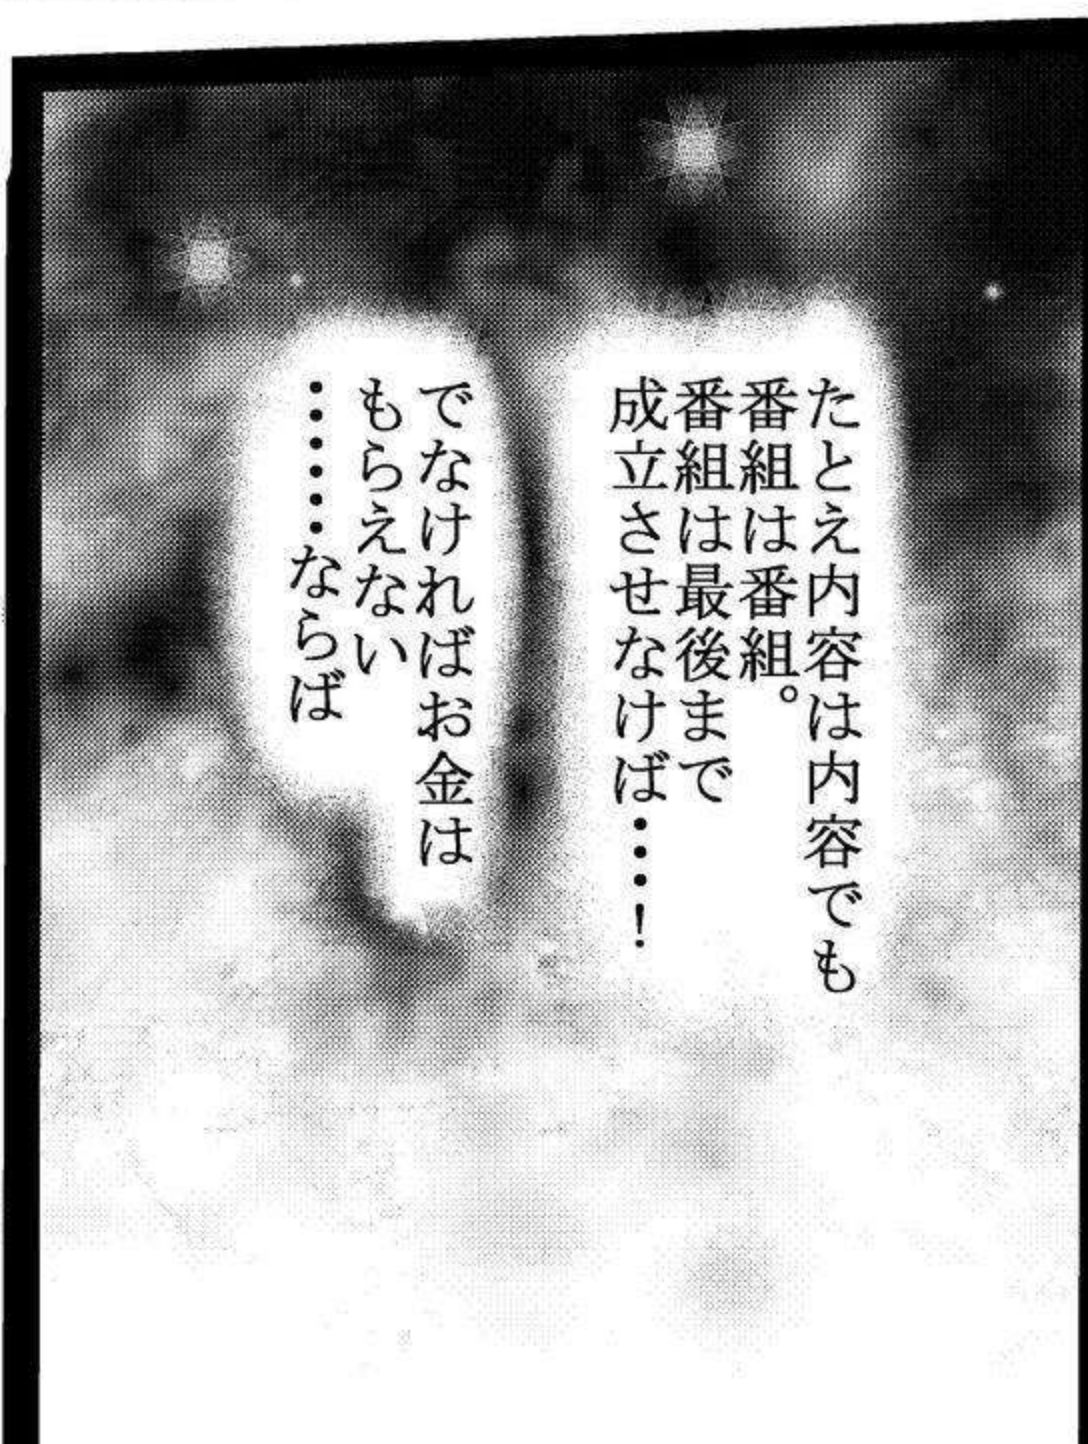 たとえ内容は内容でも
番組は番組。
番組は最後まで
成立させなけば……！
でなければお金は
もらえない
………ならば